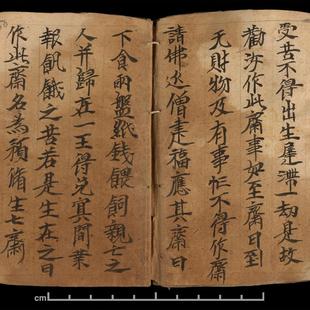 受苦不得出生遲滯一劫是故
勸汝作此齋事如至齋日到
无財物及有事忙不得作齋
請佛延僧建福應其齋日
下食兩盤紙錢餧飼親亡之
人并歸在一王得免冥間業
報飢餓之苦若是生在之日
作此齋名為預脩生七齋
cm